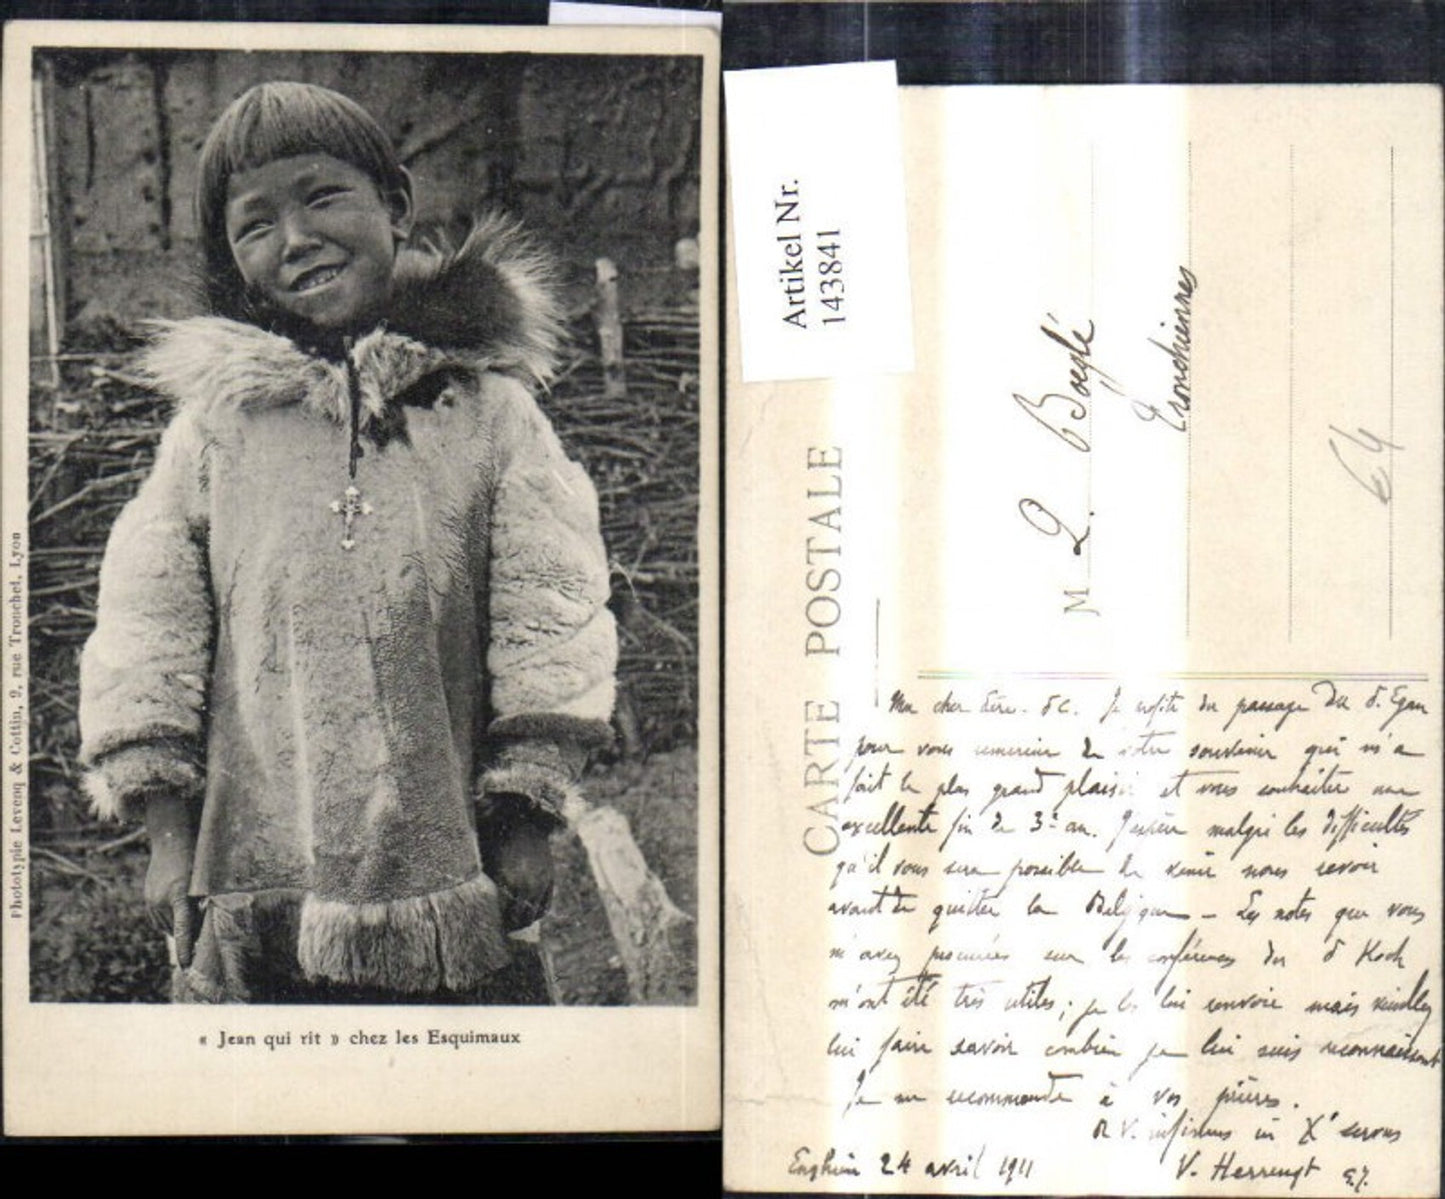 Phototypie Leveng & Cottin, 9, rue Tronchet, Lyon
« Jean qui rit » chez les Esquimaux
Artikel Nr.
143841
CARTE POSTALE
M
Tronchiennes
64
Mon cher Père. Je profite du passage du
pour vous remercier de votre souvenir qui m'a
fait le plus grand plaisir et vous souhaiter une
excellente fin de 3e an. J'espère malgré les difficultés
qu'il vous sera possible de venir nous revoir
avant de quitter la Belgique - Les notes que vous
m'avez procurées sur les conférences du Koch
m'ont été très utiles; je les lui renvoie mais veuillez
lui faire savoir combien je lui suis reconnaissant
Je me recommande à vos prières.
R V. infimus in Xo servus
Enghien 24 avril 1911 V. S.J.